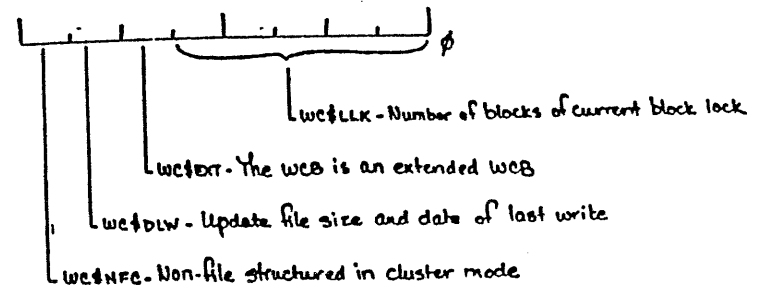 ø
WC$LLK - Number of blocks of current block lock
WC$EXT - The WCB is an extended WCB
WC$DLW - Update file size and date of last write
WC$NFC - Non-file structured in cluster mode